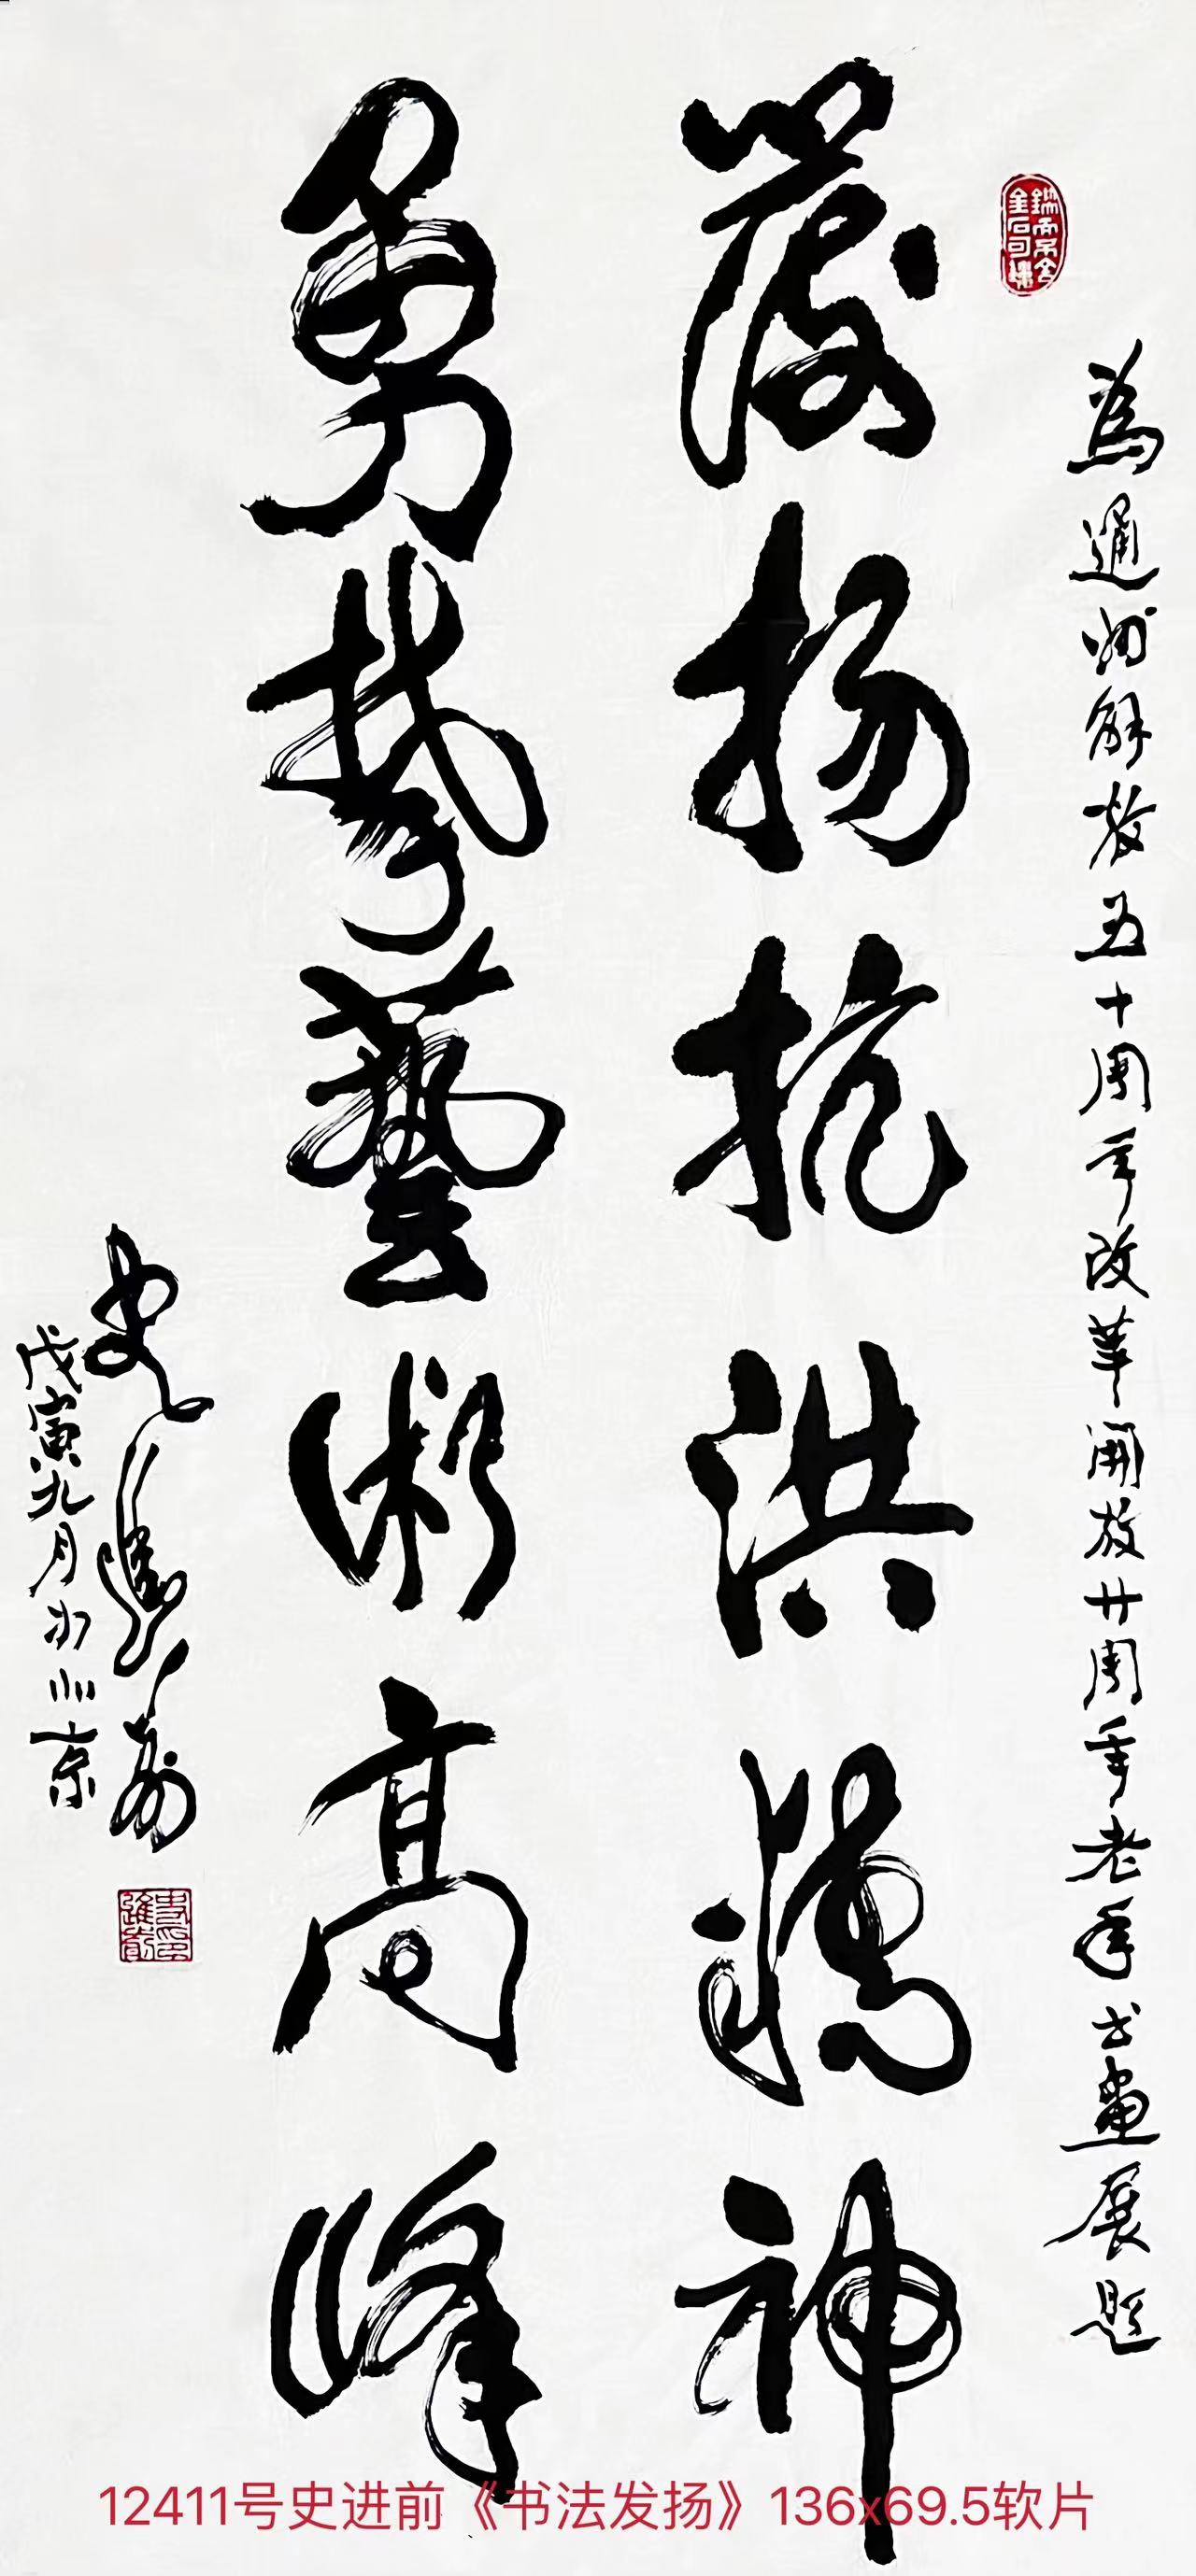 鍥而不舍
金石可鏤
為通州解放五十周年改革開放廿周年老年书畫展题
發扬抗洪精神
勇攀藝術高峰
史進前
戊寅九月於北京
史進前印
12411号史进前《书法发扬》136x69.5软片